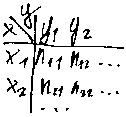 x y y₁ y₂
x₁ n₁₁ n₁₂ ...
x₂ n₂₁ n₂₂ ...
...